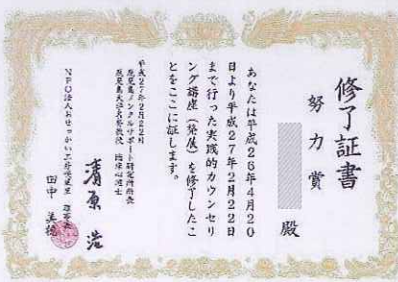 修了証書
努力賞
殿
あなたは平成26年4月20
日より平成27年2月22日
まで行った実践的カウンセリ
ング講座(発展)を修了したこ
とをここに証します。
平成27年2月22日
鹿児島メンタルサポート研究所所長
鹿児島大学名誉教授 臨床心理士
清原 浩
NPO法人おせっかい
理事長
田中 美穂